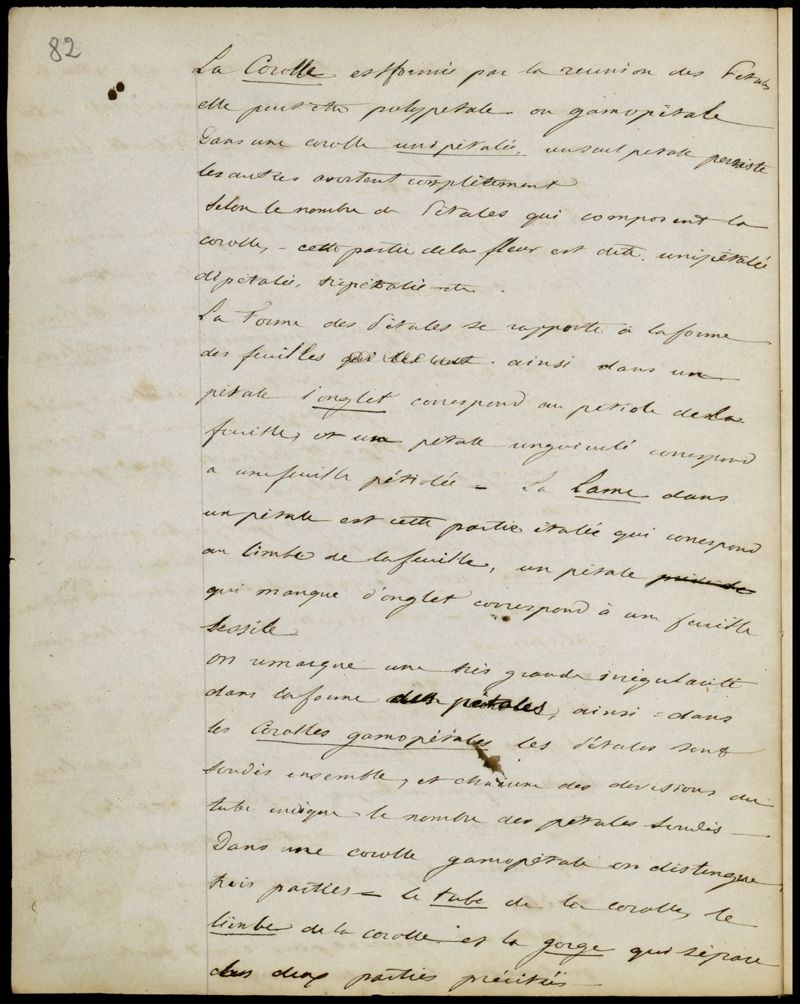 82
La Corolle est formée par la reunion des Petales
elle peut être polypetale ou gamopétale
Dans une corolle unipétalée, un seul petale persiste
les autres avortent complètement
Selon le nombre de Pétales qui composent la
corolle, - cette partie de la fleur est dite unipétalée
dipétalée, tripétalée etc
La Forme des Pétales se rapporte à la forme
des feuilles ainsi dans un
pétale l'onglet correspond au petiole de la
feuille, et un pétale unguiculé correspond
a une feuille pétiolée = La Lame dans
un pétale est cette partie étalée qui correspond
au limbe de la feuille, un pétale
qui manque d'onglet correspond à une feuille
sessile
on remarque une très grande irrégularité
dans la forme des pétales, ainsi = dans
les Corolles gamopétales les Pétales sont
soudés ensemble, et chacune des divisions du
tube indique le nombre des pétales soudés —
Dans une corolle gamopétale on distingue
trois parties = le tube de la corolle, le
limbe de la corolle et la gorge qui sépare
les deux parties précitées